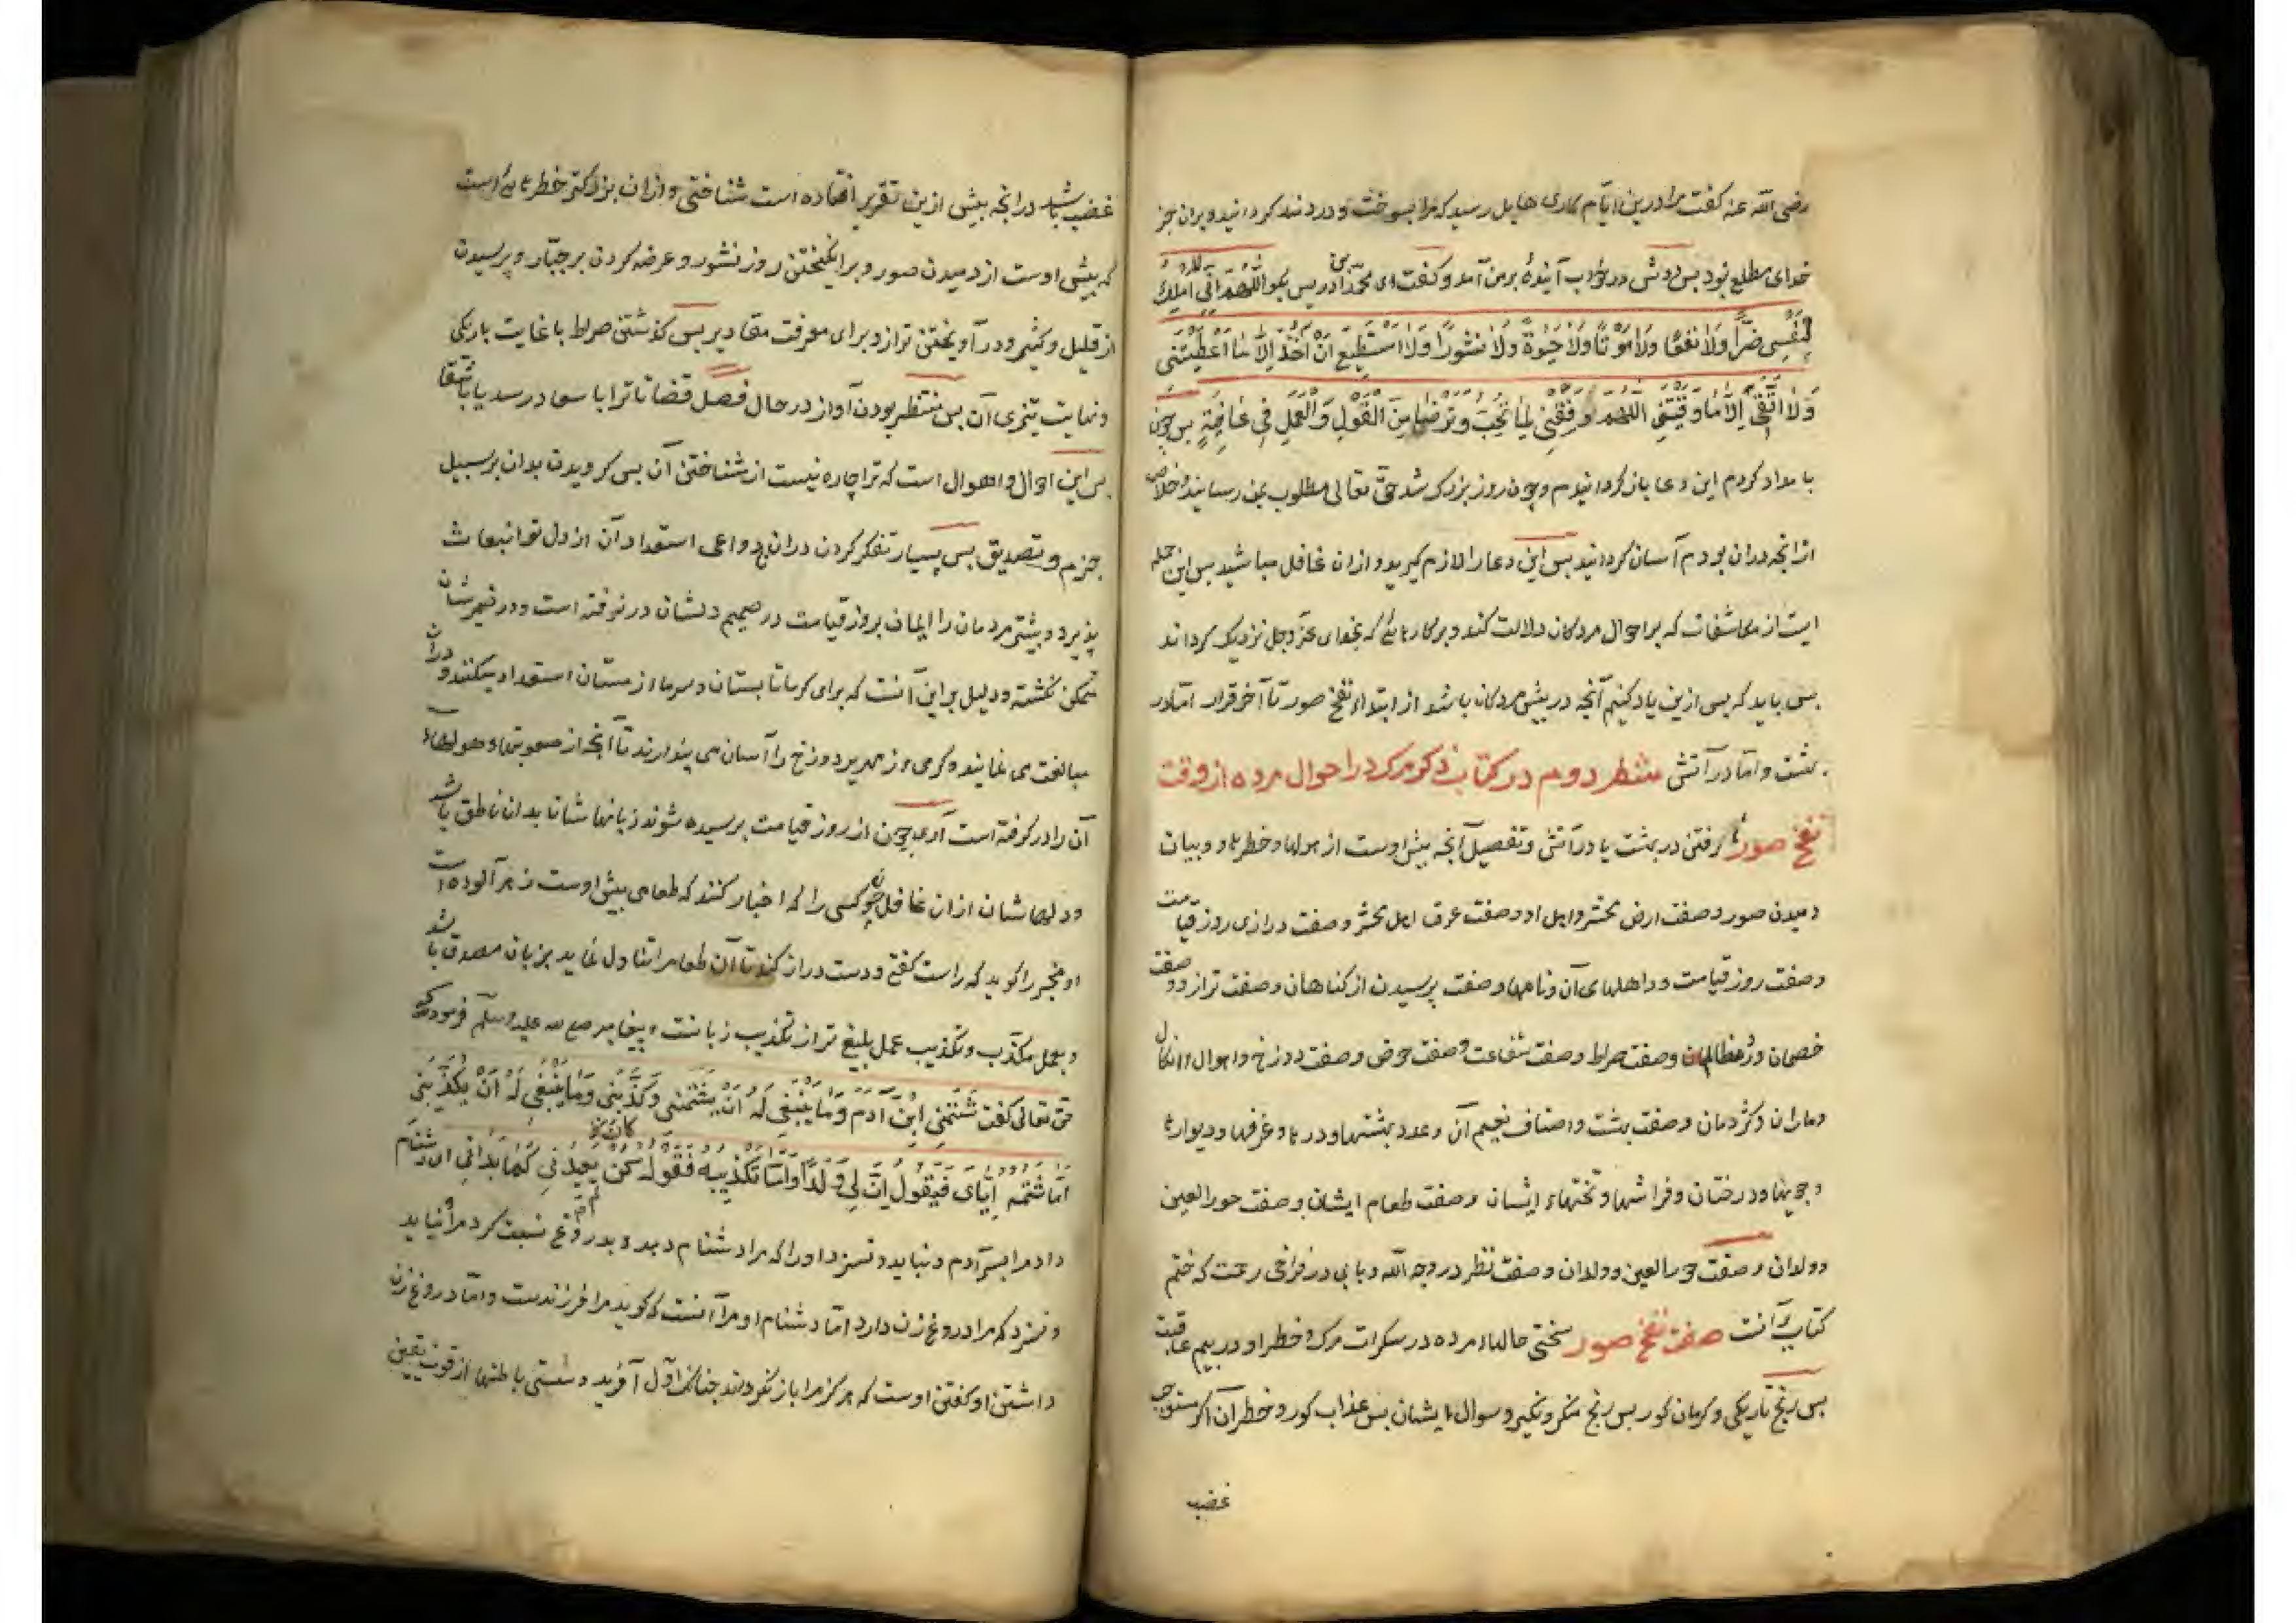 رضی الله عنه گفت مرا درین ایّام کاری هایل رسید که مرا بسوخت و دردمند کردانید و بران جز
خدای مطلع نبود بس دوش در خواب آینده بر من آمد و کفت ای محمّد ادریس بکو اللّهمّ انّی لا املك
لِنَفْسِی ضَرًّا وَلَا نَفْعًا وَلَا مَوْتًا وَلَا حَیٰوةً وَلَا نُشُورًا وَلَا اَسْتَطِیعُ اَنْ آخُذَ اِلَّا مَا اَعْطَیْتَنِی
وَلَا اَتَّقِیَ اِلَّا مَا وَقَیْتَنِی اللّٰهُمَّ وَفِّقْنِی لِمَا تُحِبُّ وَتَرْضٰی مِنَ الْقَوْلِ وَالْعَمَلِ فِی عَافِیَةٍ بس چون
بامداد کردم این دعا باز کردانیدم و چون روز بزرک شد حقّ تعالی مطلوب بمن رسانید و خلاص
از انجه دران بودم آسان کردانید بس این دعا را لازم کیرید و ازان غافل مباشید بس این جمله
ایست از مکاشفات که بر احوال مردکان دلالت کند و بر کارهائی که بخدای عزّ وجل نزدیک کرداند
بس باید که بس ازین یاد کنیم آنجه در بیش مردکان باشد از ابتداء نفخ صور تا آخر قرار امّا در
بهشت و امّا در آتش شطر دوم در کتاب ذکر مرک در احوال مرده از وقت
نفخ صور تا رفتن در بهشت یا در آتش و تفصیل آنجه بیش اوست از هولها و خطرها و بیان
دمیدن صور و صفت ارض محشر و اهل او و صفت عرق اهل محشر و صفت درازی روز قیامت
و صفت روز قیامت و داهلهای آن و نامها و صفت پرسیدن از کناهان و صفت ترازو و صفت
خصمان و رد مظالم و صفت صراط و صفت شفاعت و صفت حوض و صفت دوزخ و اهوال و انکال
و ماران و کژدمان و صفت بهشت و اصناف نعیم آن و عدد بهشتها و درها و غرفها و دیوارها
و جویها و درختان و فراشها و تختهاء ایشان و صفت طعام ایشان و صفت حور العین
و ولدان و صفت حور العین و ولدان و صفت نظر در وجه الله و بابی در فراخی رحمت که ختم
کتاب بدانست صفت نفخ صور سختی حالهاء مرده در سکرات مرک و خطر او در بیم عاقبت
بس رنج تاریکی و کرمان کور بس رنج منکر و نکیر و سوال ایشان بس عذاب کور و خطر آن اکر مستوجب
غضب
غضب باشد در انجه بیش ازین تقریر افتاده است شناختی و ازان بزرکتر خطرهائی است
که بیش اوست از دمیدن صور و برانکیختن روز نشور و عرضه کردن بر جبّار و پرسیدن
از قلیل و کثیر و در آویختن ترازو برای معرفت مقادیر بس کذشتن صراط با غایت باریکی
و نهایت تیزی آن بس منتظر بودن آواز در حال فصل قضا تا ترا با سعادت رسد یا با شقا
بس این احوال و اهوال است که ترا چاره نیست از شناختن آن بس کرویدن بدان بر سبیل
جزم و تصدیق بس بسیار تفکر کردن دران تا دواعی استعداد آن از دل تو انبعاث
پذیرد و بیشتر مردمان را ایمان بروز قیامت در صمیم دلشان در نرفته است و در ضمیرشان
متمکن نکشته و دلیل بر این آنست که برای کرما تابستان و سرماء زمستان استعداد میکنند و دران
مبالغت می نمایند و کرمی و زمهریر دوزخ را آسان می پندارند تا آنجه از صعوبتها و هولهاء
آن را در کرفته است آری چون از روز قیامت پرسیده شوند زبانها شان بدان ناطق باشد
و دلها شان ازان غافل چون کسی را که اخبار کنند که طعامی بیش اوست زهر آلوده است
او مخبر را کوید که راست کفتی و دست دراز کند تا آن طعام را تناول نماید بزبان مصدق باشد
و بعمل مکذّب و تکذیب عمل بلیغ تر از تکذیب زبانست و بیغامبر صلی الله علیه وسلّم فرمود که
حق تعالی کفت شَتَمَنِی ابْنُ آدَمَ وَمَا یَنْبَغِی لَهُ اَنْ یَشْتِمَنِی وَکَذَّبَنِی وَمَا یَنْبَغِی لَهُ اَنْ یُکَذِّبَنِی
اَمَّا شَتْمُهُ اِیَّایَ فَیَقُولُ اِنَّ لِی وَلَدًا وَاَمَّا تَکْذِیبُهُ فَقَوْلُهُ لَنْ یُعِیدَنِی کَمَا بَدَاَنِی ای دشنام
داد مرا بسر آدم و نباید و نسزد او را که مرا دشنام دهد و بدروغ نسبت کرد مرا و نباید
و نسزد که مرا دروغ زن دارد امّا دشنام او مرا آنست که کوید مرا فرزندست و امّا دروغ زن
داشتن او کفتن اوست که هرکز مرا باز نکرداند جنانک اوّل آفرید و سستی باطنها از قوت یقین